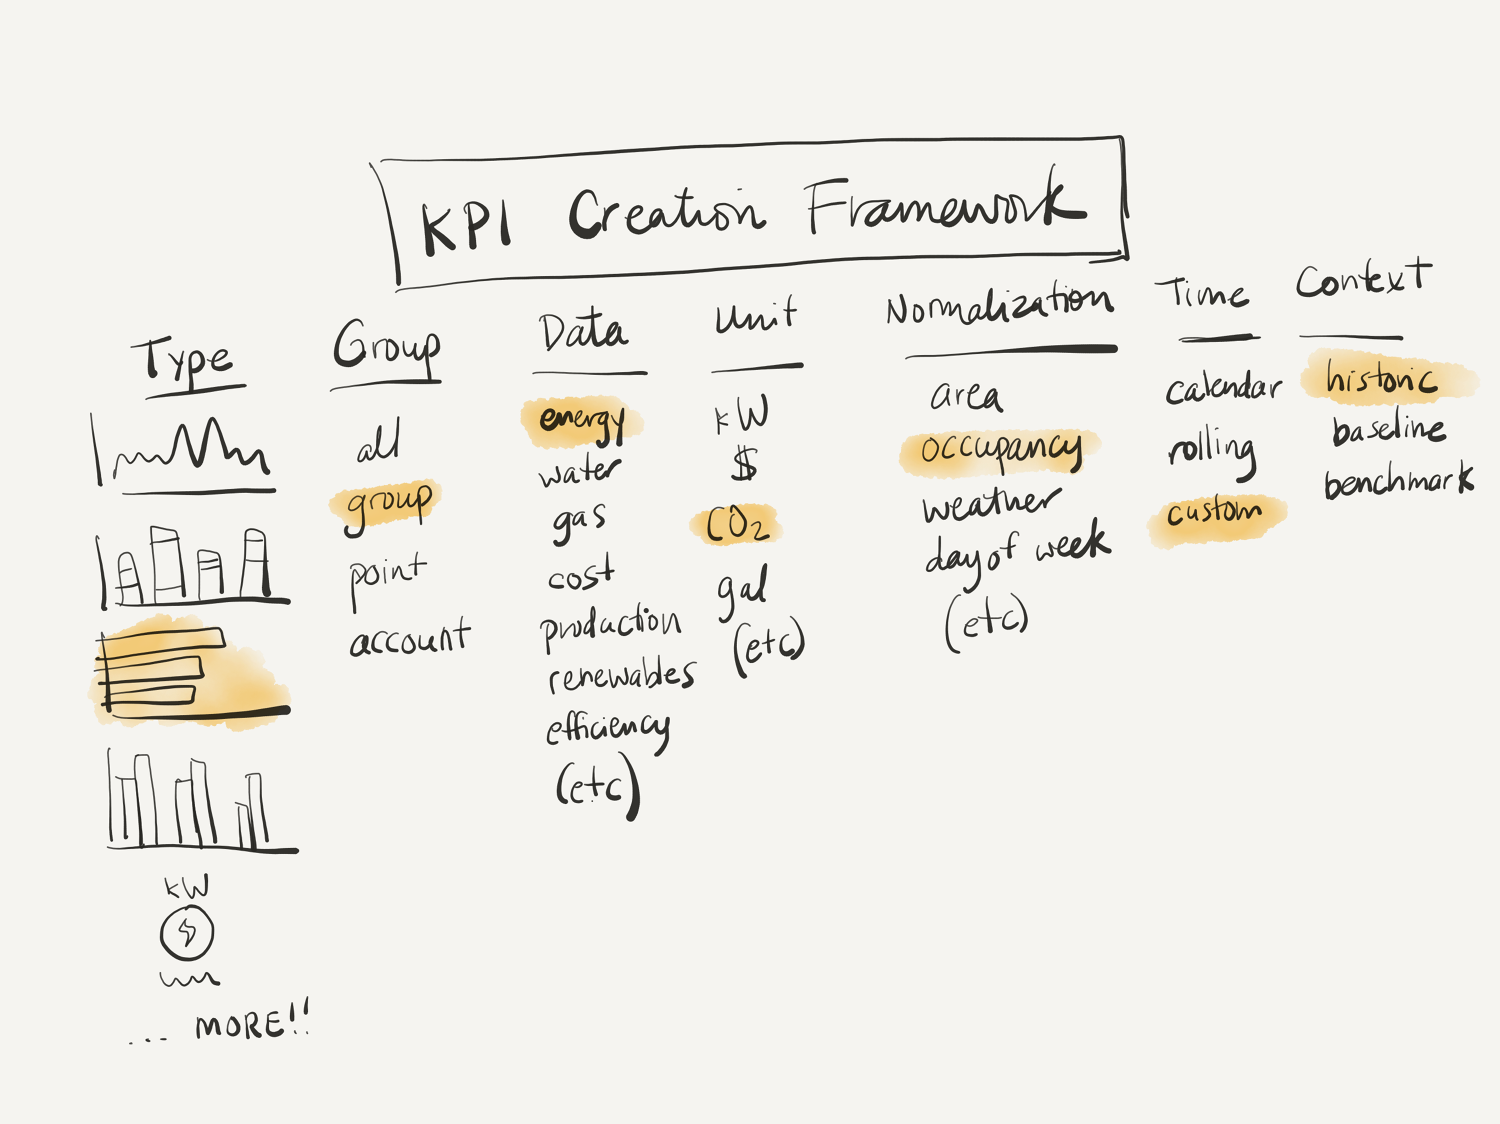 KPI Creation Framework
Type
kW
... MORE!!
Group
all
group
point
account
Data
energy
water
gas
cost
production
renewables
efficiency
(etc)
Unit
kW
$
CO2
gal
(etc)
Normalization
area
occupancy
weather
day of week
(etc)
Time
calendar
rolling
custom
Context
historic
baseline
benchmark